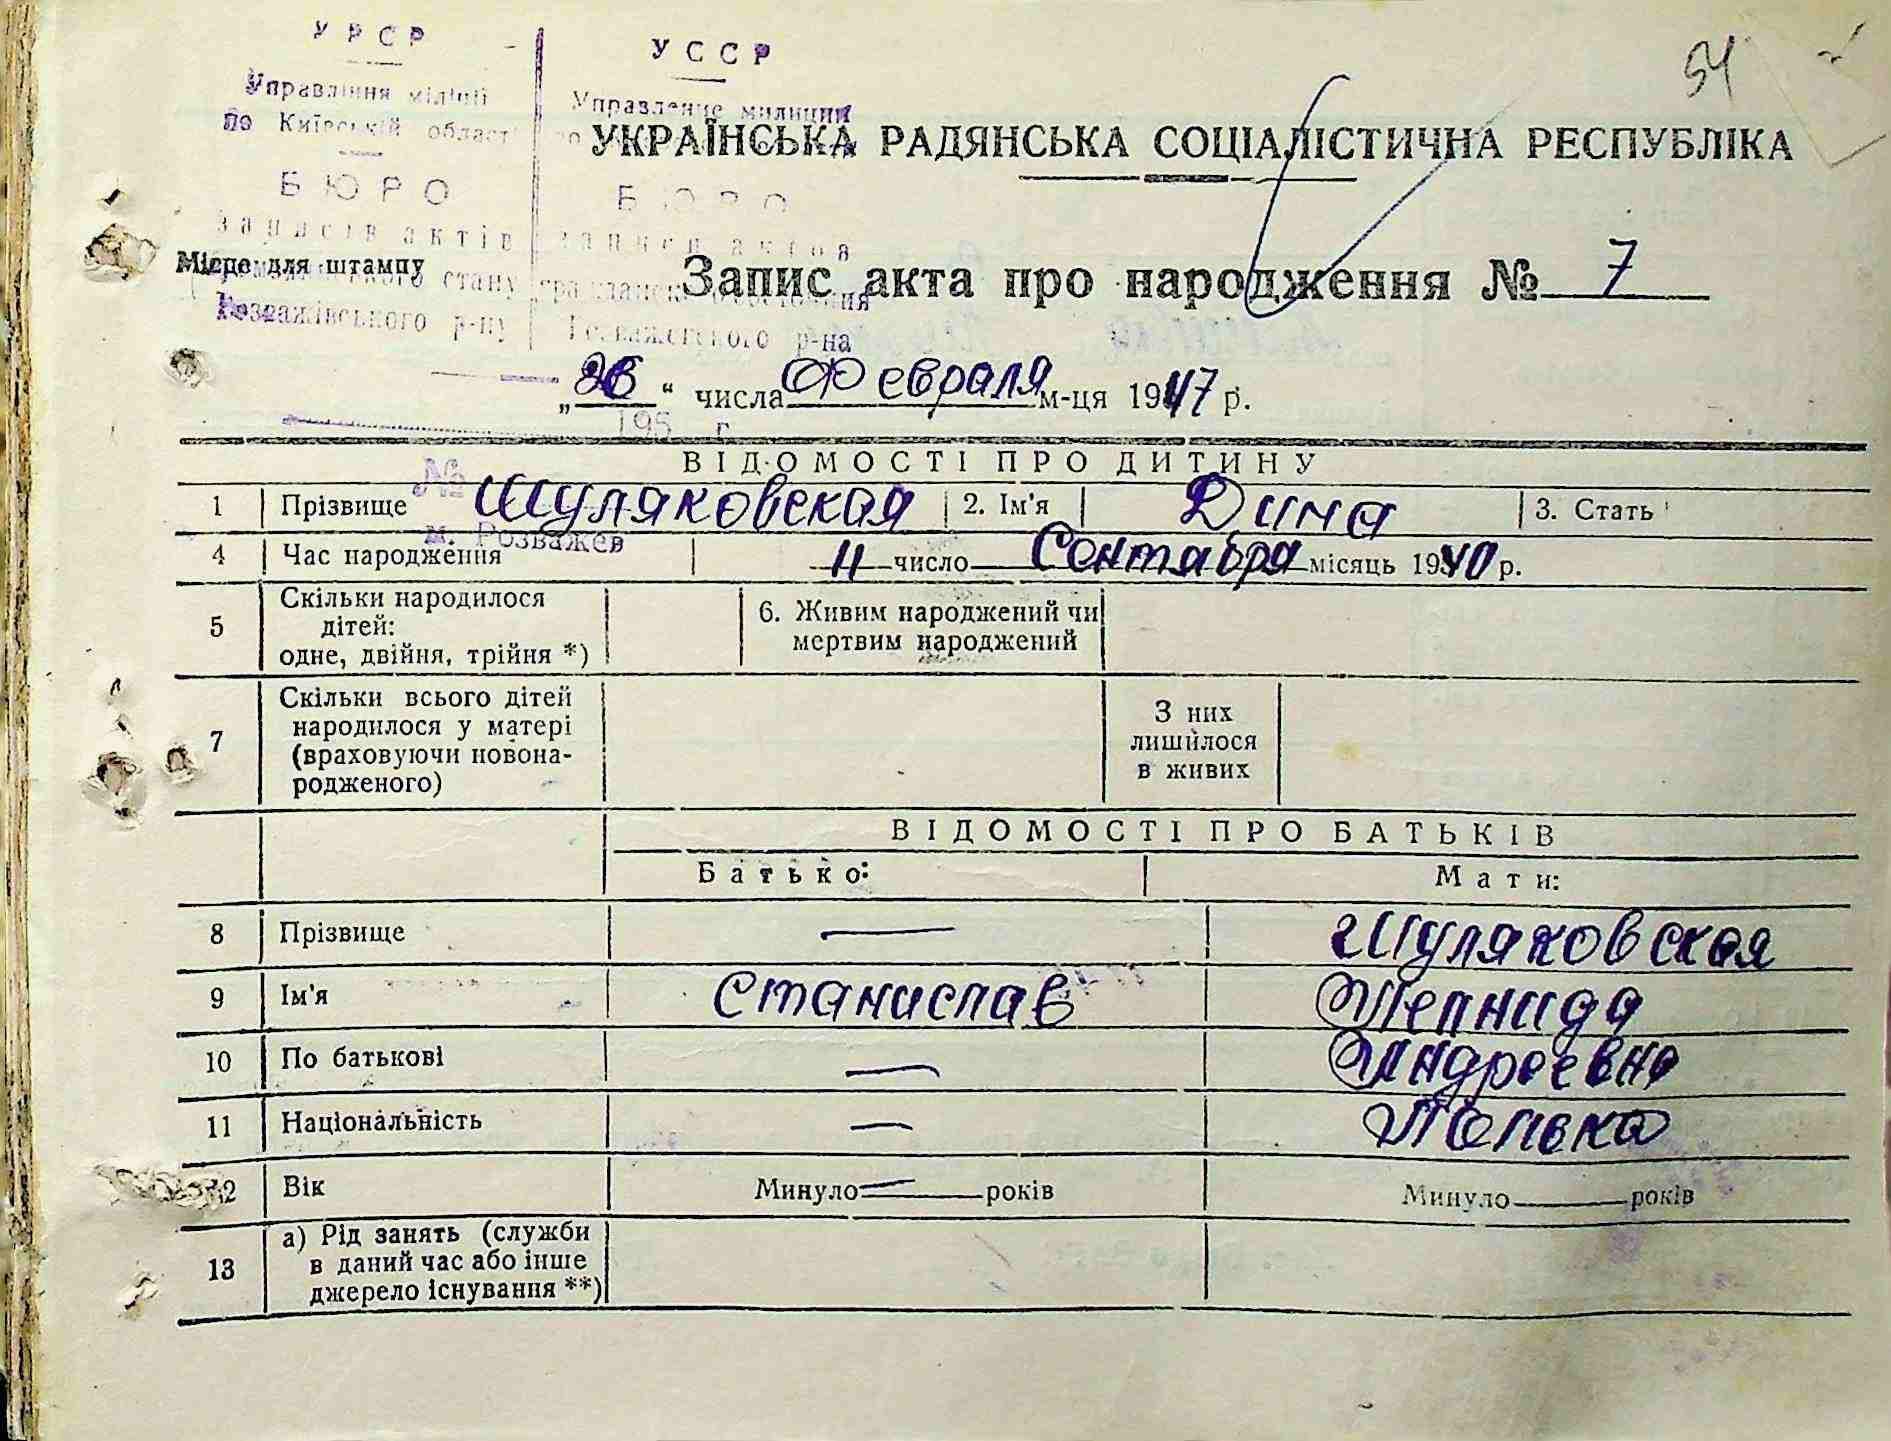 54
У Р С Р
Управління міліції
по Київській област
БЮРО
записів актів
стану
Розважівського р-ну
У С С Р
Управление милиции
БЮРО
записи актов
р-на
195 г
№
м. Розважев
УКРАЇНСЬКА РАДЯНСЬКА СОЦІАЛІСТИЧНА РЕСПУБЛІКА
Місце для штампу
Запис акта про народження № 7
„ 26 “ числа Февраля м-ця 1947 р.
ВІДОМОСТІ ПРО ДИТИНУ
1 Прізвище Шуляковская 2. Ім'я Дина 3. Стать
4 Час народження 11 число Сентября місяць 1940 р.
5 Скільки народилося
дітей:
одне, двійня, трійня *)
6. Живим народжений чи
мертвим народжений
7 Скільки всього дітей
народилося у матері
(враховуючи новона-
родженого)
З них
лишилося
в живих
ВІДОМОСТІ ПРО БАТЬКІВ
Батько: Мати:
8 Прізвище — Шуляковская
9 Ім'я Станислав
10 По батькові — Андреевна
11 Національність — Полька
12 Вік Минуло — років Минуло років
13 а) Рід занять (служби
в даний час або інше
джерело існування **)